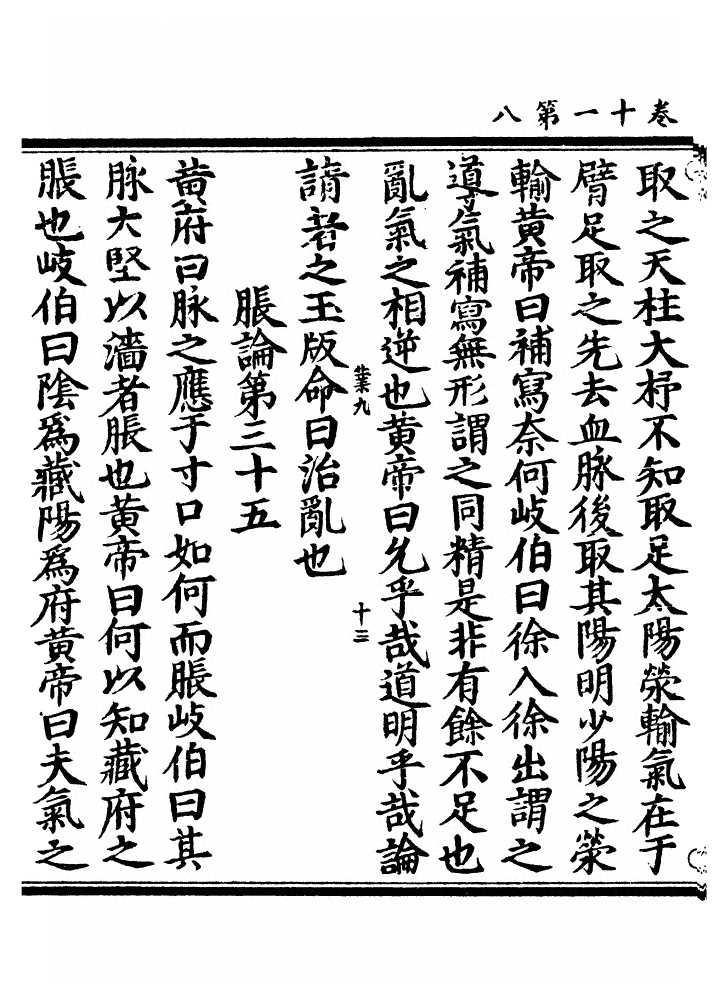 卷十一第八
取之天柱大杼不知取足太陽滎輸氣在于
臂足取之先去血脉後取其陽明少陽之滎
輸黄帝曰補寫奈何岐伯曰徐入徐出謂之
導氣補寫無形謂之同精是非有餘不足也
亂氣之相逆也黄帝曰允乎哉道明乎哉論
業九
十三
請著之玉版命曰治亂也
脹論第三十五
黄府曰脉之應于寸口如何而脹岐伯曰其
脉大堅以濇者脹也黄帝曰何以知藏府之
脹也岐伯曰陰爲藏陽爲府黄帝曰夫氣之